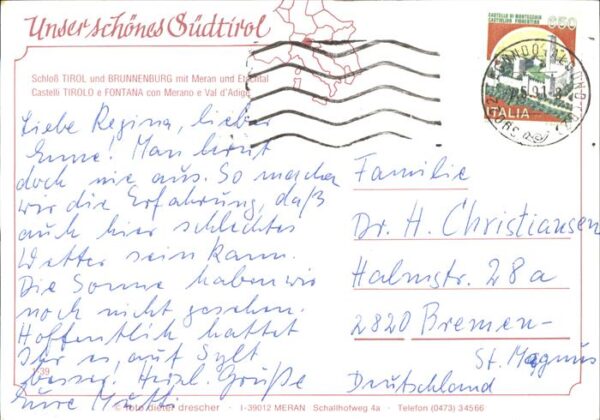 Unser schönes Südtirol
Schloß TIROL und BRUNNENBURG mit Meran und Etschtal
Castelli TIROLO e FONTANA con Merano e Val d'Adige
CASTELLO DI MONTECCHIO
CASTIGLION FIORENTINO
650
ITALIA
Liebe Regina, lieber
Enne! Man lernt
doch nie aus. So machen
wir die Erfahrung, daß
auch hier schlechtes
Wetter sein kann.
Die Sonne haben wir
noch nicht gesehen.
Hoffentlich hattet
Ihr es auf Sylt
besser! Herzl. Grüße
Eure Mutti
Familie
Dr. H. Christiansen
Halmstr. 28a
2820 Bremen-
St. Magnus
Deutschland
© foto dieter drescher - I-39012 MERAN Schallhofweg 4a - Telefon (0473) 34566